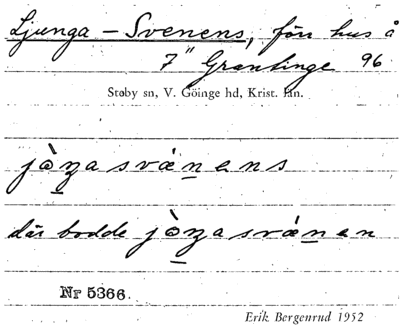 Ljunga - Svenens, förr hus å
7" Grantinge 96
Stoby sn, V. Göinge hd, Krist. län.
jòŋasvǽnens
där bodde jòŋasvǽnen
Nr 5366.
Erik Bergenrud 1952